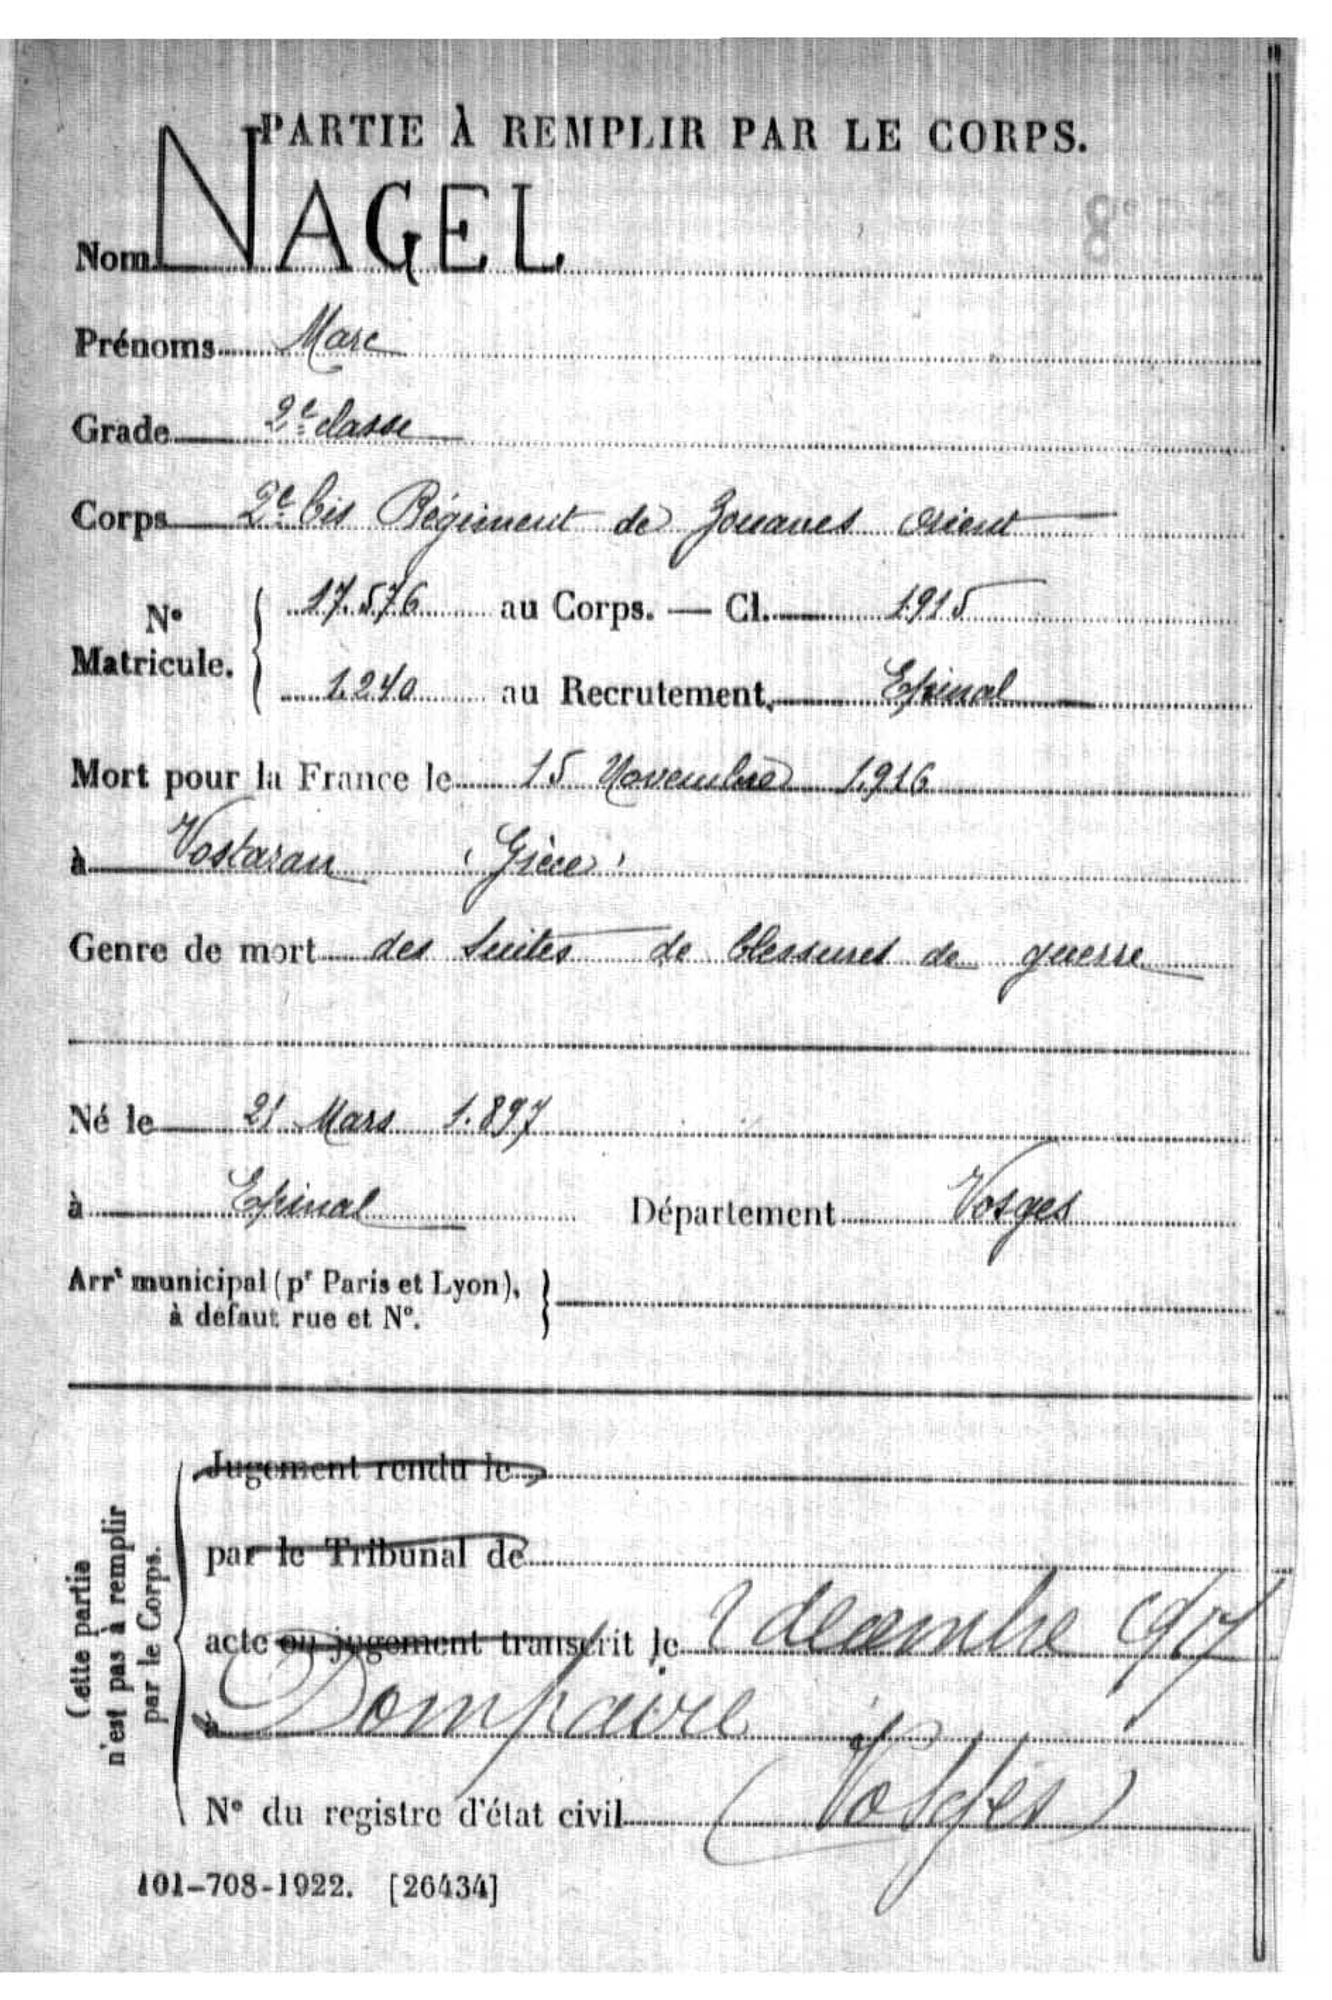 PARTIE À REMPLIR PAR LE CORPS.
Nom NAGEL
8°
Prénoms Marc
Grade 2e classe
Corps 2e bis Régiment de Zouaves Orient
N° Matricule. { 17.576 au Corps. — Cl. 1915
1.240 au Recrutement Epinal
Mort pour la France le 15 Novembre 1.916
à Vostaran (Grèce)
Genre de mort des suites de blessures de guerre
Né le 21 Mars 1.897
à Epinal Département Vosges
Arrt municipal (pr Paris et Lyon), }
à défaut rue et N°.
Jugement rendu le
par le Tribunal de
acte ou jugement transcrit le 2 décembre 1917
à Dompaire
(Vosges)
N° du registre d'état civil
(Cette partie
n'est pas à remplir
par le Corps.
101-708-1922. [26434]